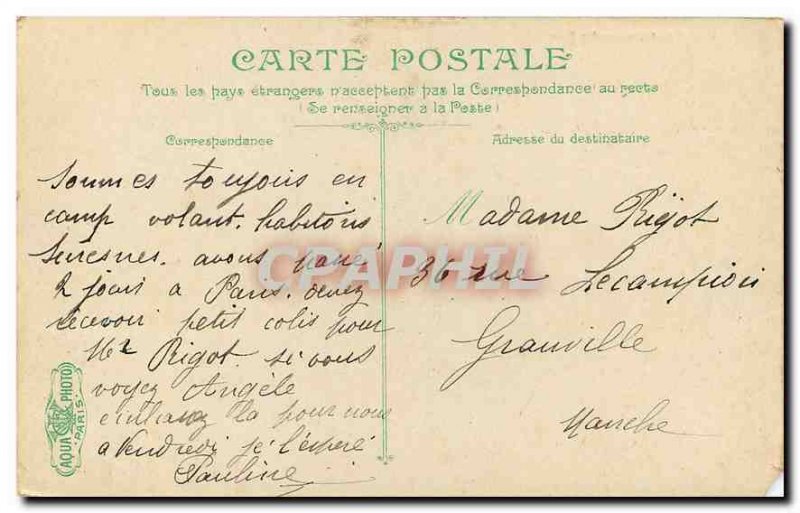 CARTE POSTALE
Tous les pays étrangers n'acceptent pas la Correspondance au recto
(Se renseigner à la Poste)
Correspondance
Adresse du destinataire
Sommes toujours en
camp volant. habitons
Suresnes. avons passé
2 jours a Paris. devez
recevoir petit colis pour
Mr Rigot. si vous
voyez Angèle
embrassez la pour nous
a Vendredi je l'espère
Pauline
Madame Rigot
36 rue Lecampion
Granville
Manche
CPAPHIL
AQUA PHOTO
PARIS